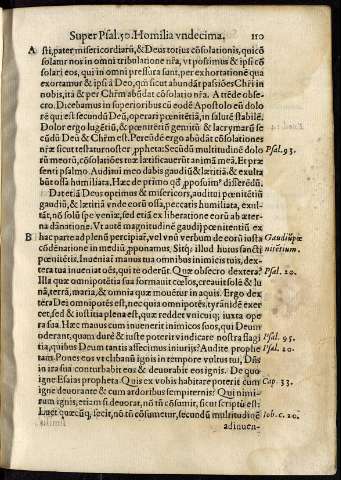 Super Psal. 50. Homilia vndecima. 110
A sti, pater misericordiarũ, & Deus totius cõsolationis, qui cõ
solatur nos in omni tribulatione nr̃a, vt possimus & ipsi cõ
solari eos, qui in omni pressura sunt, per exhortationẽ qua
exortamur & ipsi à Deo, qm̃ sicut abundãt passiões Chr̃i in
nobis, ità & per Chr̃m abũdat cõsolatio nr̃a. Attẽde obse-
cro. Dicebamus in superioribus cũ eodẽ Apostolo eũ dolo
rẽ qui est secundũ Deũ, operari pœnitẽtiã, in salutẽ stabilẽ.
Dolor ergo lugẽtiũ, & pœnitẽtiũ gemitũ & lacrymarũ se
cundũ Deũ & Chr̃m est. Per eũ ergo abũdat cõsolationes
nr̃æ sicut testatur noster, ꝓpheta: Secũdũ multitudinẽ dolo
rũ meorũ, cõsolatiões tuæ lætificauerũt animã meã. Et præ Psal. 93.
senti psalmo. Auditui meo dabis gaudiũ & lætitiã, & exulta
bũt ossa humiliata. Hæc de primo qđ, ꝓposuim⁹ differẽdũ.
Dat etiã Deus optimus & misericors, auditui pœnitẽtiũ
gaudiũ, & lætitiã vnde eorũ ossa, peccatis humiliata, exul-
tãt, nõ solũ spe veniæ, sed etiã ex liberatione eorũ ab æter-
na dãnatione. Vt autẽ magnitudinẽ gaudij pœnitentiũ ex
B hac parte ad plenũ percipiã, vel vnũ verbum de eorũ iusta Gaudiũ pœ
cõdẽnatione in mediũ ꝓponamus. Sitq; illud huius sancti nitẽtium.
pœnitẽtis. Inueniaĩ manus tua omnibus inimicis tuis, dex-
tera tua inueniat oẽs, qui te oderũt. Quæ obsecro dextera? Psal. 20.
Illa quæ omnipotẽtia sua formauit cœlos, creauit solẽ & lu
nã, terrã, maria, & omnia quæ mouẽtur in aquis. Ergo dex-
tera Dei omnipotẽs est, nec quia omnipotẽs, tyrãnidẽ exer
cet, sed & iustitia plena est, quæ reddet vnicuiq; iuxta ope
ra sua. Hæc manus cum inuenerit inimicos suos, qui Deum
oderant, quam durè & iustè poterit vindicare nostra flagi Psal. 95.
tia, quibus Deum tantis affecimus iniurijs? Audite prophe Psal. 20.
tam. Pones eos vt clibanũ ignis in tempore voltus tui, Dñs
in ira sua conturbabit eos & deuorabit eos ignis. De quo
igne Esaias propheta: Quis ex vobis habitare poterit cum Cap. 33.
igne deuorante & cum ardoribus sempiternis? Qui nimi-
rum ignis, etiam si deuorat, nõ tñ cõsumit, sicut scriptũ est:
Luet quæcũq; fecit, nõ tñ cõsumetur, secundũ multitudinẽ Iob. c. 20.
adinuen-